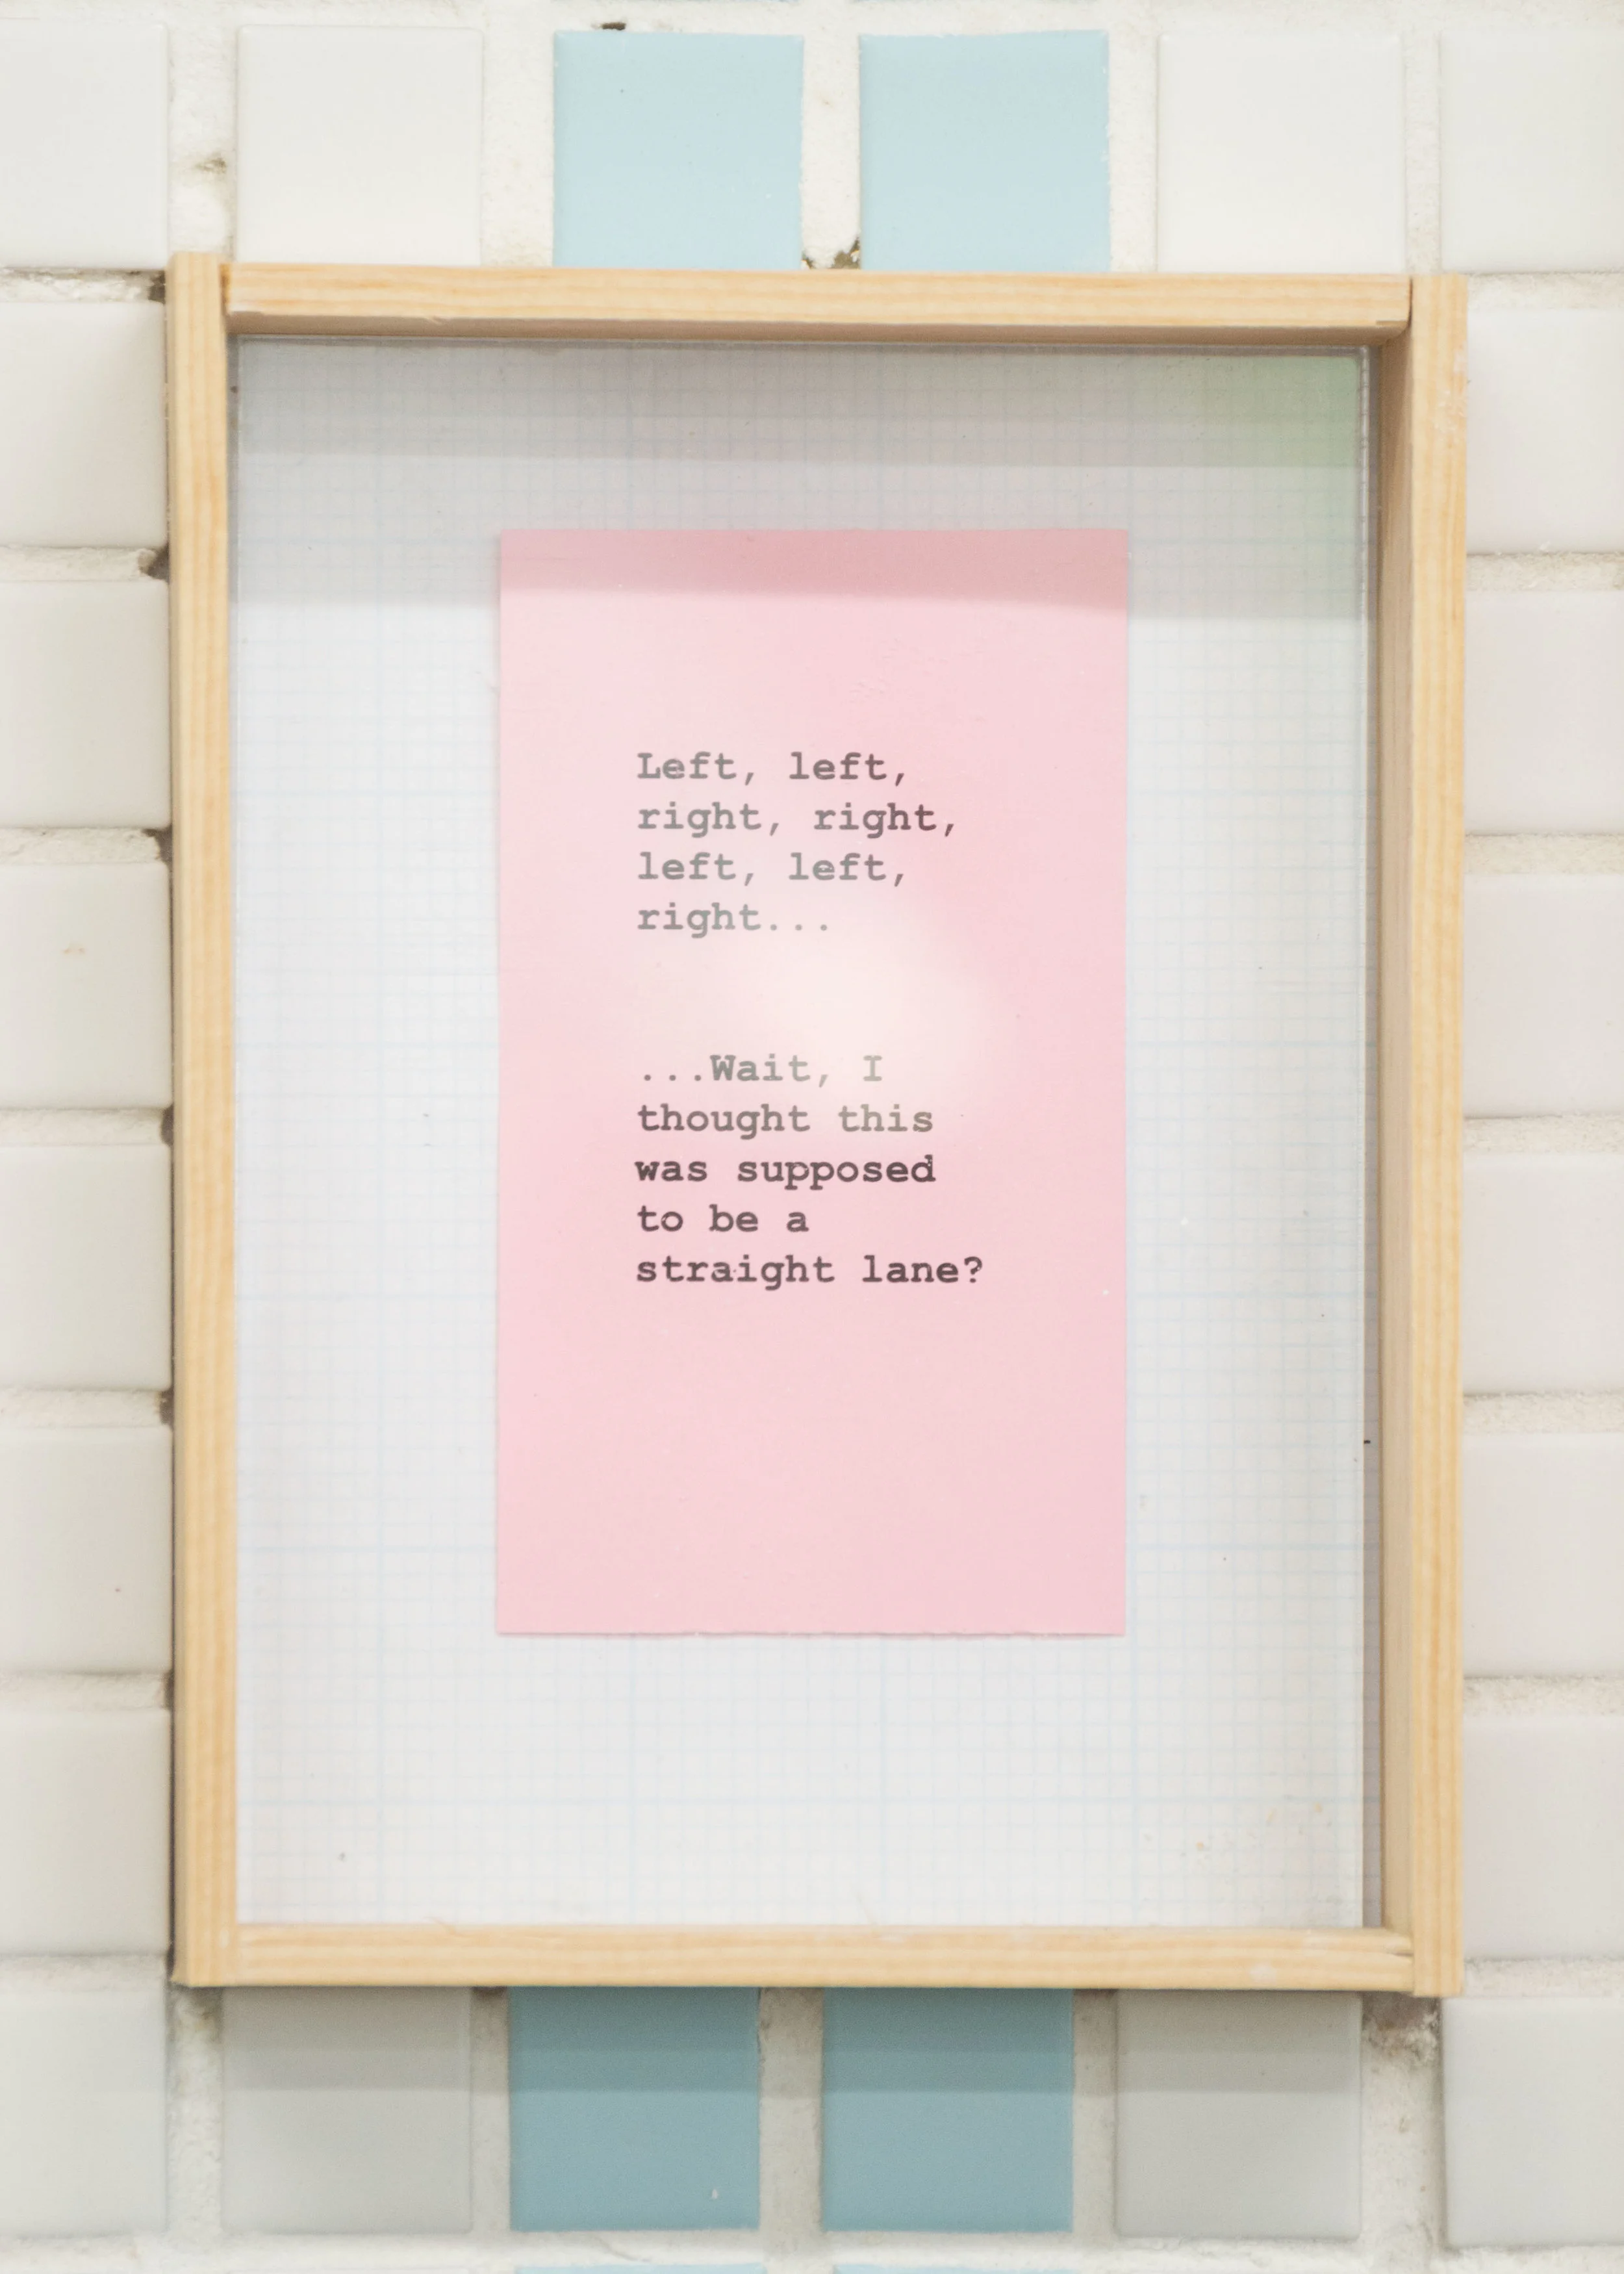 Left, left,
right, right,
left, left,
right...
...Wait, I
thought this
was supposed
to be a
straight lane?